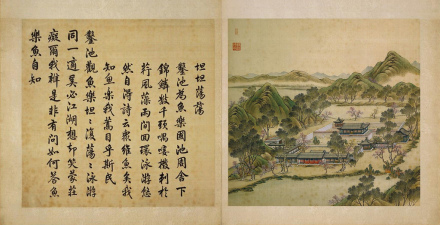 坦坦蕩蕩
鑿池為魚樂國池周舍下
錦鱗數千頭喁唼撥剌於
荇風藻雨間回環泳游悠
然自得詩云衆維魚矣我
知魚樂我蒿目乎斯民
鑿池觀魚樂坦々復蕩々泳游
同一適奚必江湖想却笑蒙莊
癡爾我辨是非有問如何答魚
樂魚自知